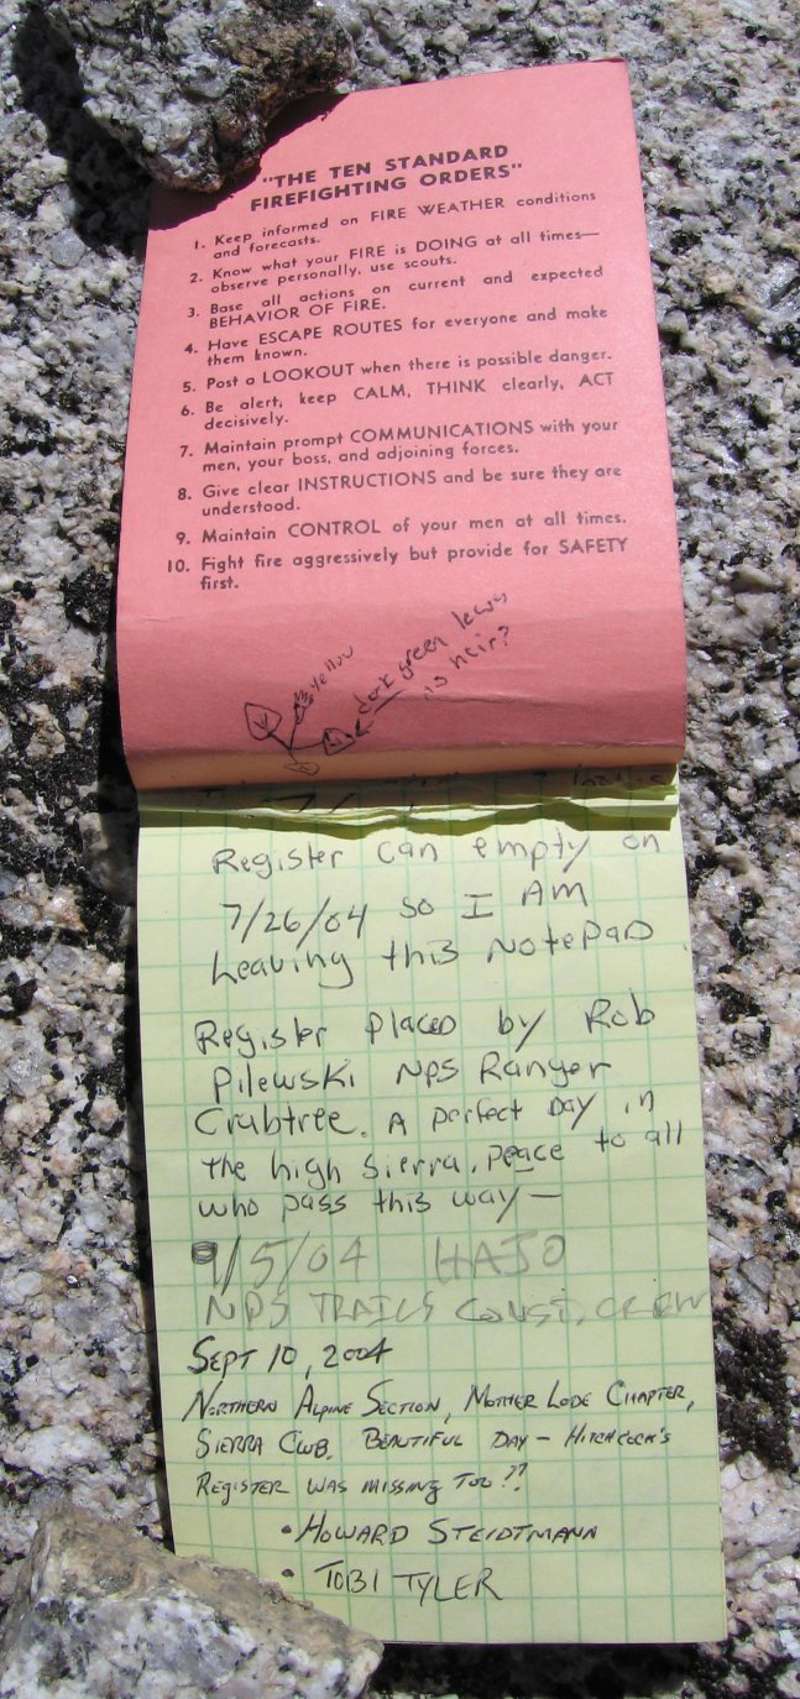 "THE TEN STANDARD
FIREFIGHTING ORDERS"
1. Keep informed on FIRE WEATHER conditions
and forecasts.
2. Know what your FIRE is DOING at all times—
observe personally, use scouts.
3. Base all actions on current and expected
BEHAVIOR OF FIRE.
4. Have ESCAPE ROUTES for everyone and make
them known.
5. Post a LOOKOUT when there is possible danger.
6. Be alert, keep CALM, THINK clearly, ACT
decisively.
7. Maintain prompt COMMUNICATIONS with your
men, your boss, and adjoining forces.
8. Give clear INSTRUCTIONS and be sure they are
understood.
9. Maintain CONTROL of your men at all times.
10. Fight fire aggressively but provide for SAFETY
first.
yellow
dark green
Register can empty on
7/26/04 so I AM
Leaving this NotePad
Register placed by Rob
Pilewski NPS Ranger
Crabtree. A perfect Day in
the high Sierra, peace to all
who pass this way —
9/5/04 HAJO
NPS TRAILS CONST. CREW
SEPT 10, 2004
NORTHERN ALPINE SECTION, MOTHER LODE CHAPTER,
SIERRA CLUB. BEAUTIFUL DAY – HITCHCOCK'S
REGISTER WAS MISSING TOO??
• HOWARD STEIDTMANN
• TOBI TYLER